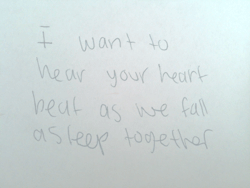 I want to
hear your heart
beat as we fall
asleep together